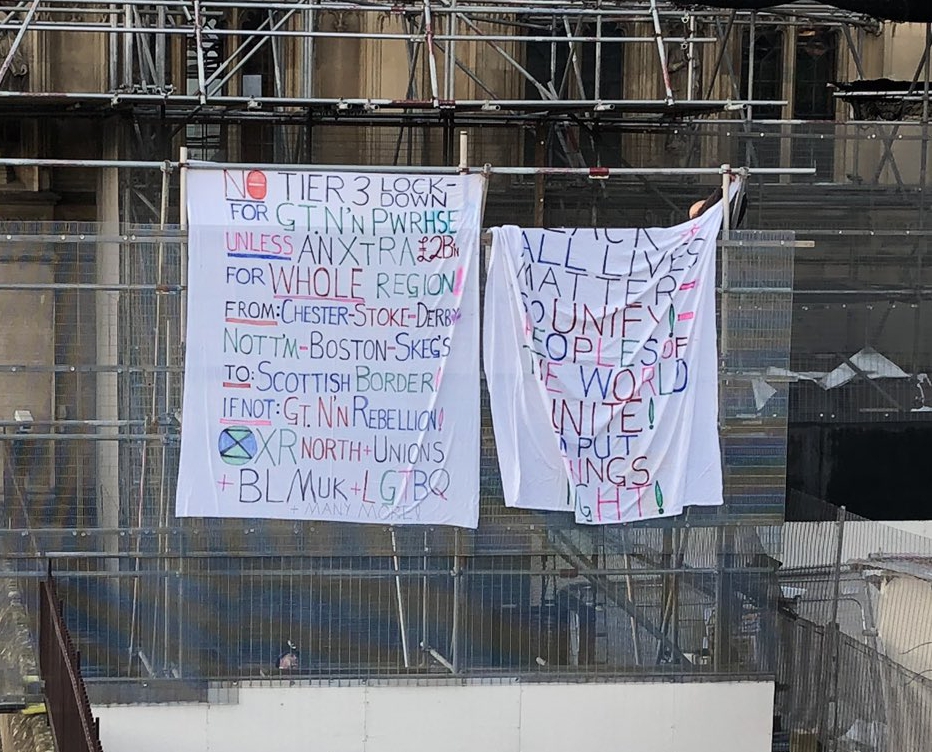 NO TIER 3 LOCK-
DOWN
FOR GT. N'n PWRHSE
UNLESS AN XTRA £2Bn
FOR WHOLE REGION!
FROM: CHESTER-STOKE-DERBY
NOTT'M-BOSTON-SKEG'S
TO: SCOTTISH BORDER!
IF NOT: GT. N'n REBELLION!
XR NORTH+UNIONS
+BLMUK+LGTBQ
+ MANY MORE!
ALL LIVES
MATTER-
SO UNIFY!-
PEOPLES OF
THE WORLD
UNITE!
PUT